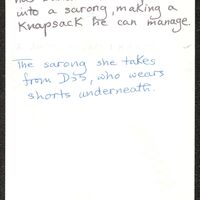 into a sarong, making a
knapsack he can manage.
The sarong she takes
from D35, who wears
shorts underneath.